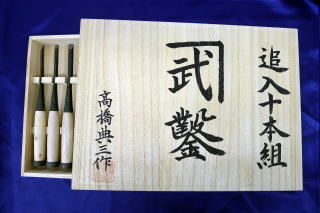 追入十本組
武鑿
高橋典三作